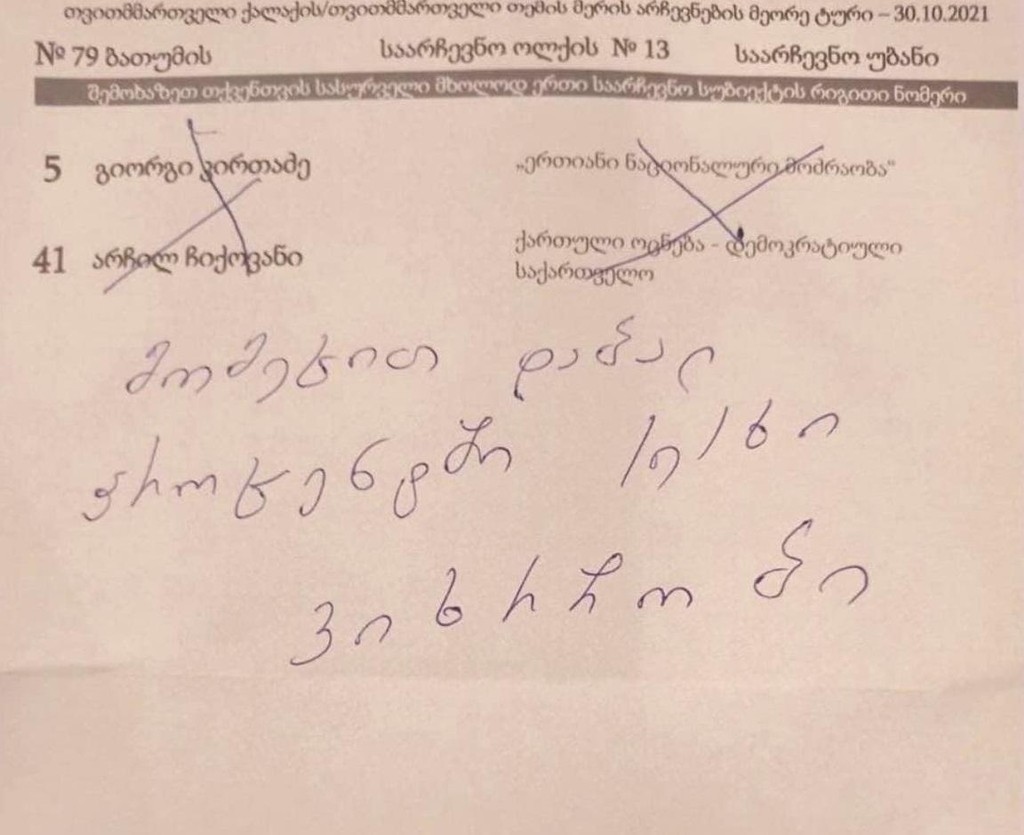 თვითმმართველი ქალაქის/თვითმმართველი თემის მერის არჩევნების მეორე ტური – 30.10.2021
№ 79 ბათუმის საარჩევნო ოლქის № 13 საარჩევნო უბანი
შემოხაზეთ თქვენთვის სასურველი მხოლოდ ერთი საარჩევნო სუბიექტის რიგითი ნომერი
5 გიორგი კირთაძე „ერთიანი ნაციონალური მოძრაობა“
41 არჩილ ჩიქოვანი ქართული ოცნება - დემოკრატიული
საქართველო
მომეცით დაბალ
პროცენტში სესხი
ვიხრჩობი